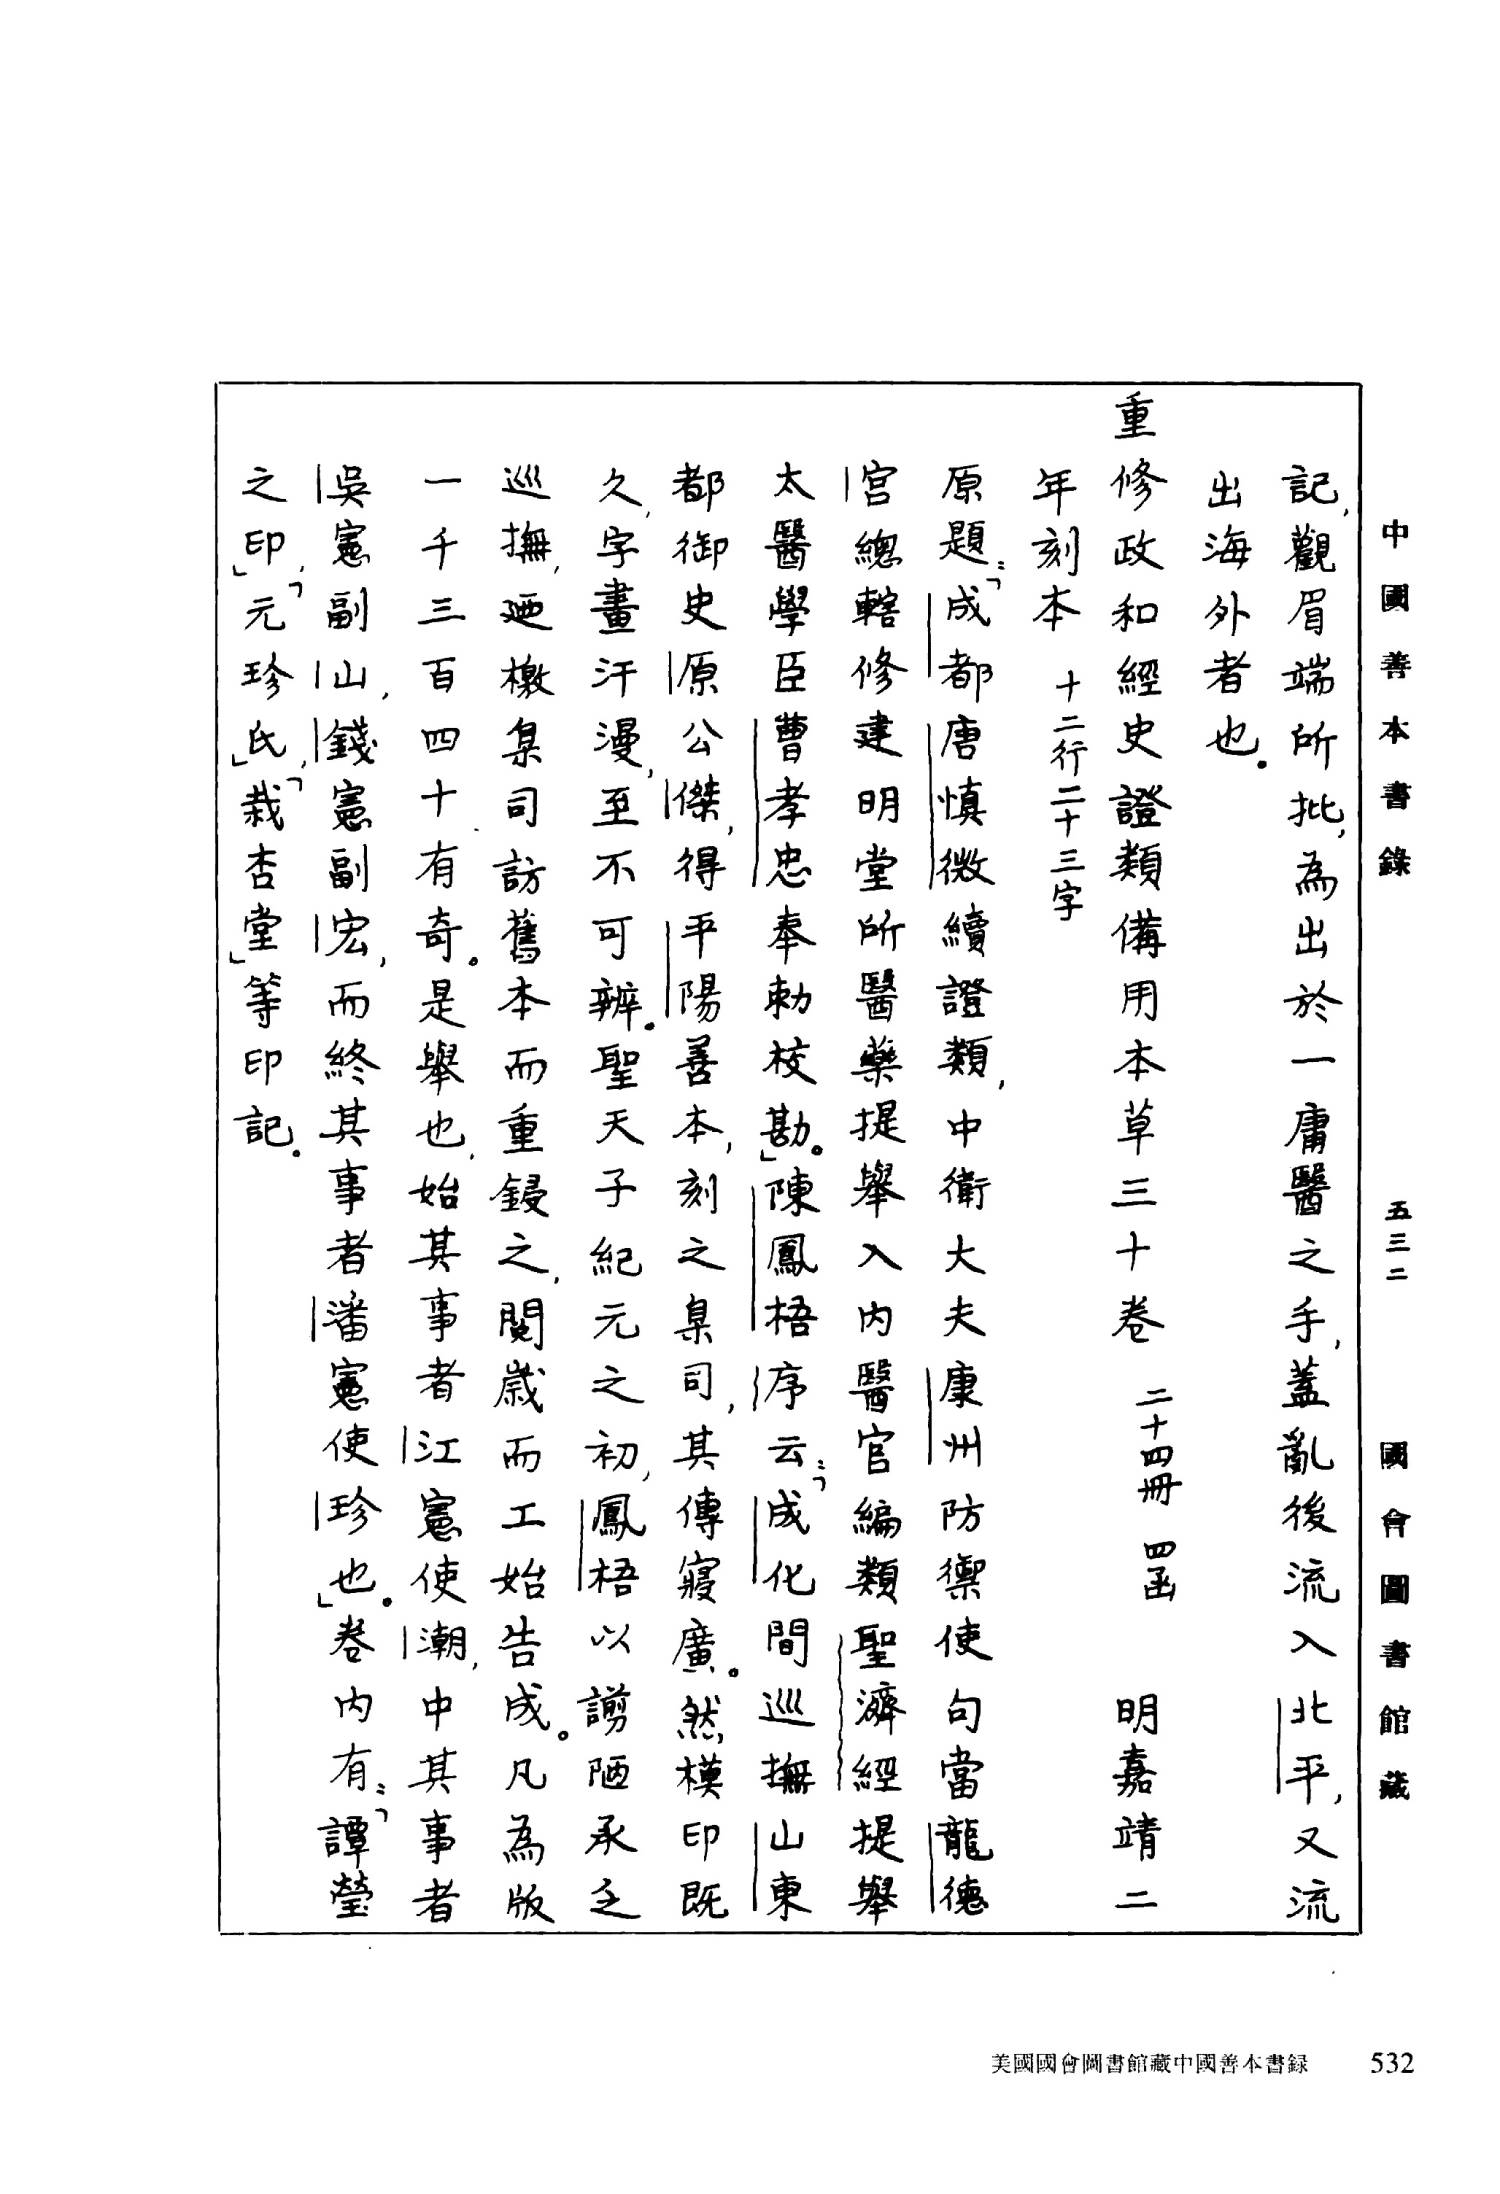 中國善本書錄　五三二　國會圖書館藏
記，觀眉端所批，為出於一庸醫之手，蓋亂後流入北平，又流
出海外者也。
重修政和經史證類備用本草三十卷　二十四冊　四函　明嘉靖二
年刻本　十二行二十三字
原題：「成都唐慎微續證類，中衛大夫康州防禦使句當龍德
宮總轄修建明堂所醫藥提舉入內醫官編類聖濟經提舉
太醫學臣曹孝忠奉勅校勘。」陳鳳梧序云：「成化間巡撫山東
都御史原公傑，得平陽善本，刻之臬司，其傳寖廣。然模印既
久，字畫汗漫，至不可辨。聖天子紀元之初，鳳梧以謭陋承乏
巡撫，迺檄臬司訪舊本而重鋟之，閱歲而工始告成。凡為版
一千三百四十有奇。是舉也，始其事者江憲使潮，中其事者
吳憲副山，錢憲副宏，而終其事者潘憲使珍也。」卷內有：「譚瑩
之印」，「元珍氏」，「栽杏堂」等印記。
美國國會圖書館藏中國善本書録　532